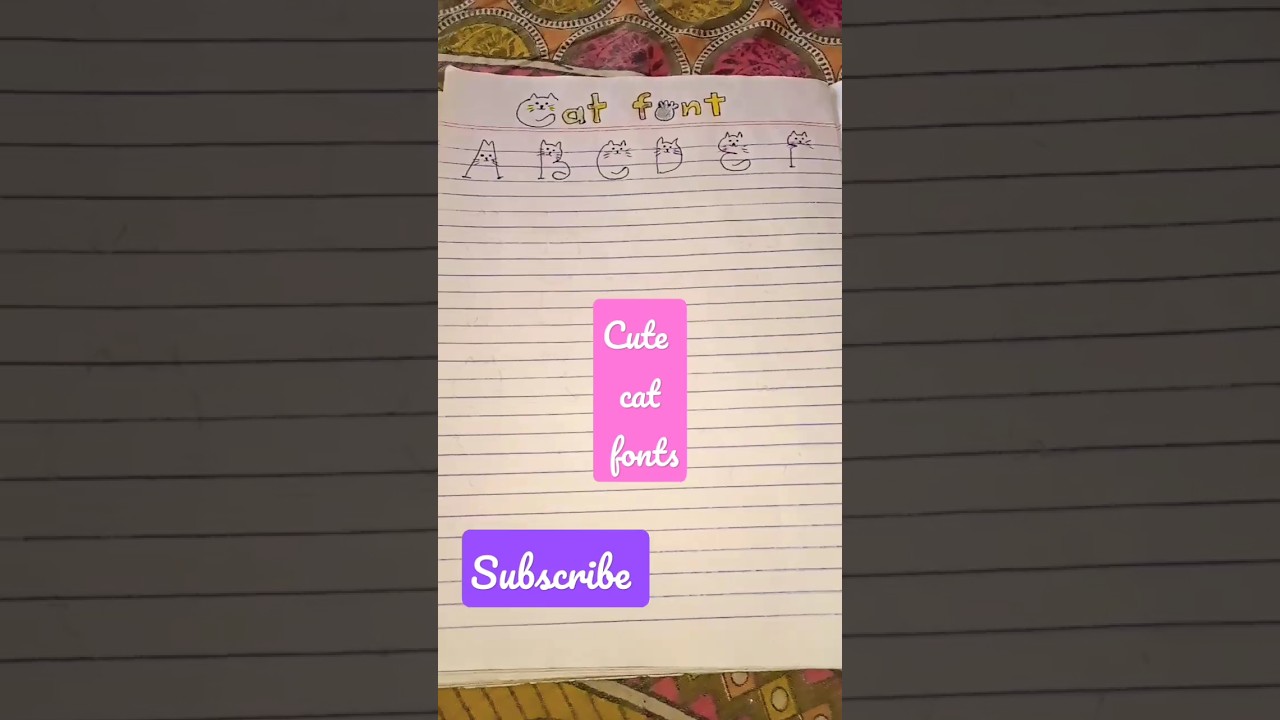 Cat font
A B C D E F
Cute
cat
fonts
Subscribe